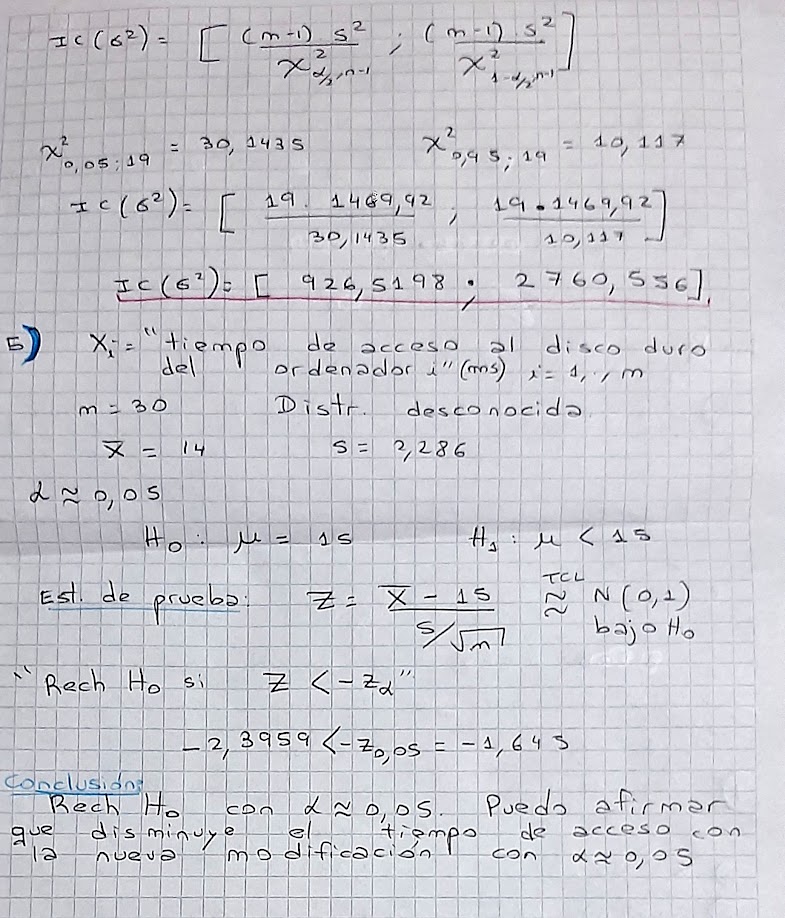 IC(σ²) = [ (n-1) s² / χ²_{α/2, n-1} ; (n-1) s² / χ²_{1-α/2, n-1} ]
χ²_{0,05;19} = 30,1435 χ²_{0,95;19} = 10,117
IC(σ²) = [ 19 . 1469,92 / 30,1435 ; 19 . 1469,92 / 10,117 ]
IC(σ²) = [ 926,5198 ; 2760,556 ].
5) Xᵢ = "tiempo de acceso al disco duro
del ordenador i" (ms) i = 1, .., n
n = 30 Distr. desconocida
X̄ = 14 s = 2,286
α ≈ 0,05
H₀ : μ = 15 H₁ : μ < 15
Est. de prueba: Z = (X̄ - 15) / (s/√n) ≈^{TCL} N(0,1)
bajo H₀
"Rech H₀ si Z < -z_α"
-2,3959 < -z_{0,05} = -1,645
Conclusión:
Rech H₀ con α ≈ 0,05. Puedo afirmar
que disminuye el tiempo de acceso con
la nueva modificación con α ≈ 0,05